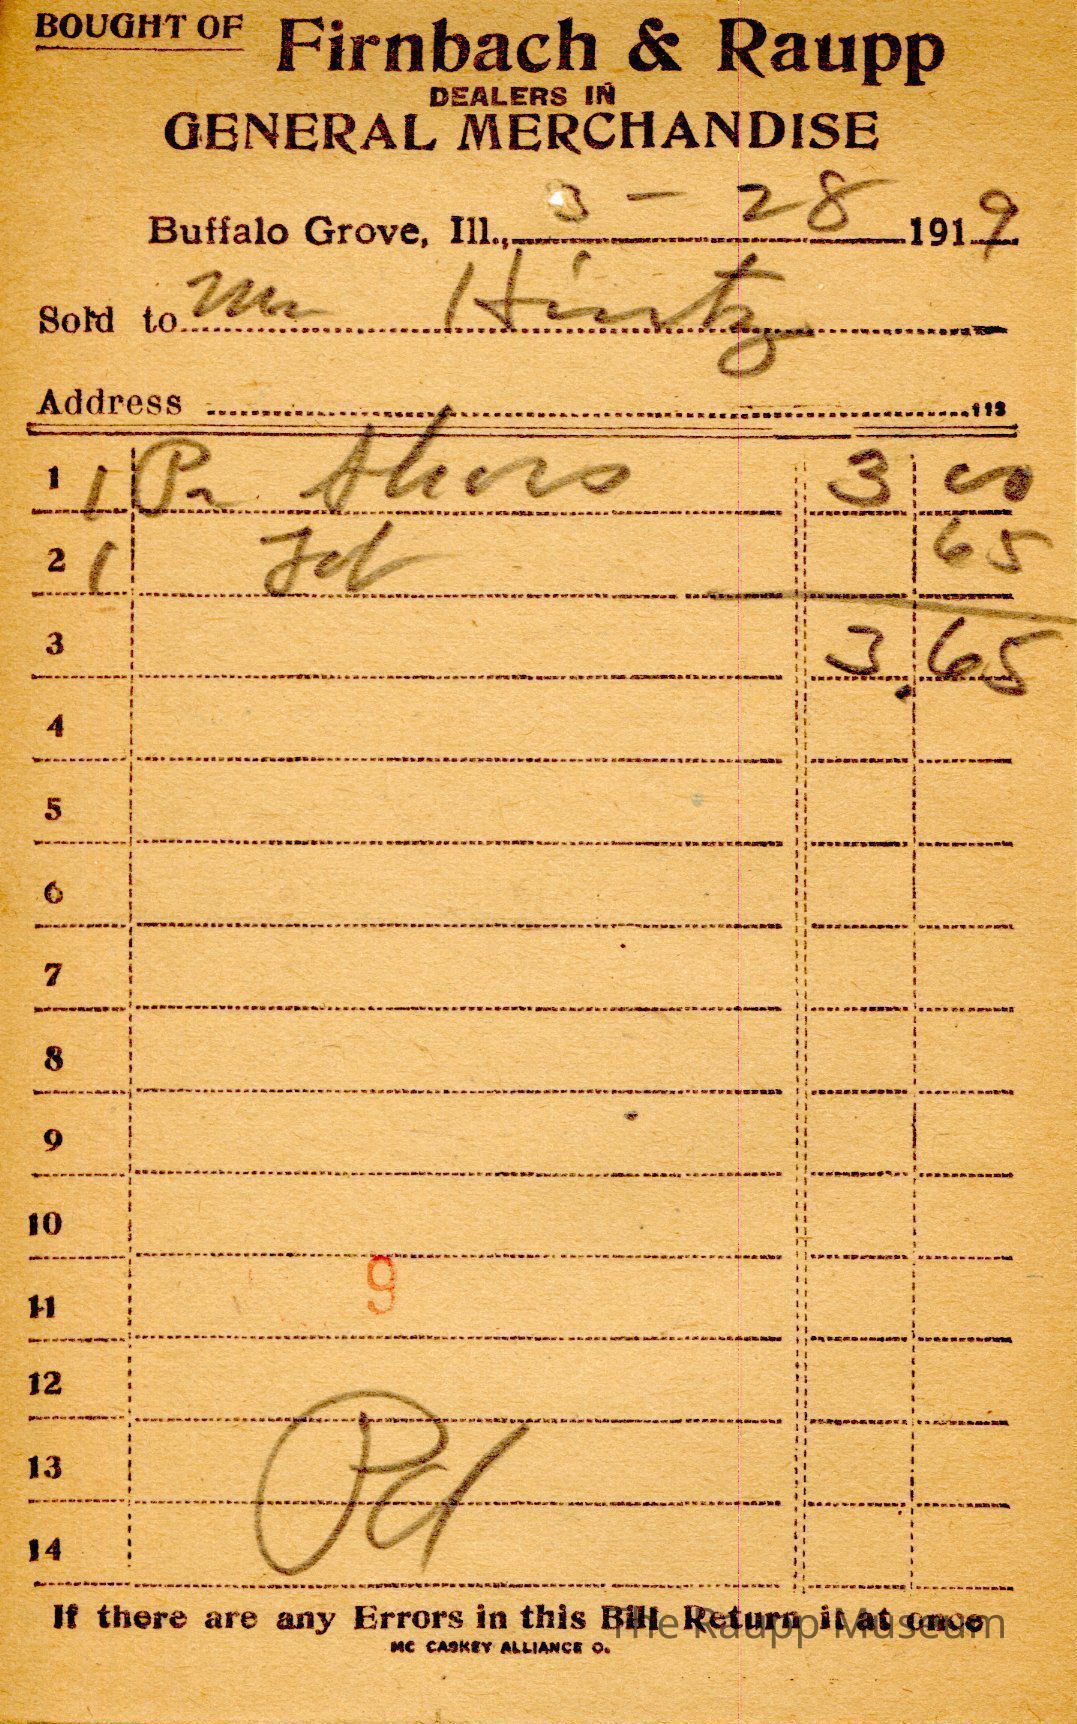 BOUGHT OF Firnbach & Raupp
DEALERS IN
GENERAL MERCHANDISE
Buffalo Grove, Ill., 3 - 28 1919
Sold to Mr Hintz
Address
1 1 Pr Shoes 3 00
2 1 65
3 3.65
4
5
6
7
8
9
10
9
11
12
13 Pd
14
If there are any Errors in this Bill Return it at once
The Raupp Museum
MC CASKEY ALLIANCE O.